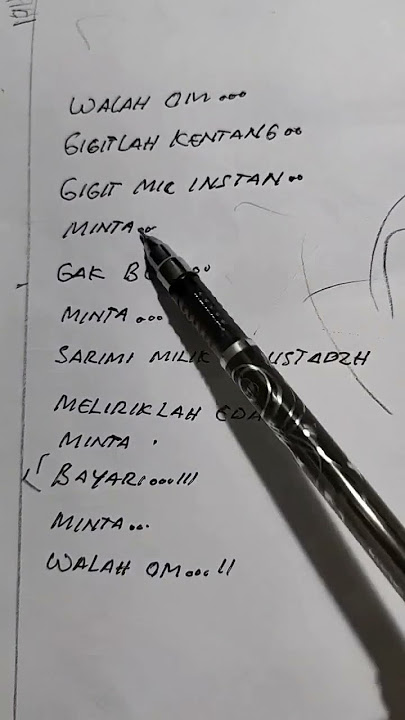 WALAH OM...
GIGITLAH KENTANG..
GIGIT MIE INSTAN..
MINTA..
GAK
MINTA...
SARIMI MILIK USTADZH
MELIRIKLAH
MINTA .
BAYARI...!!!
MINTA...
WALAH OM...!!